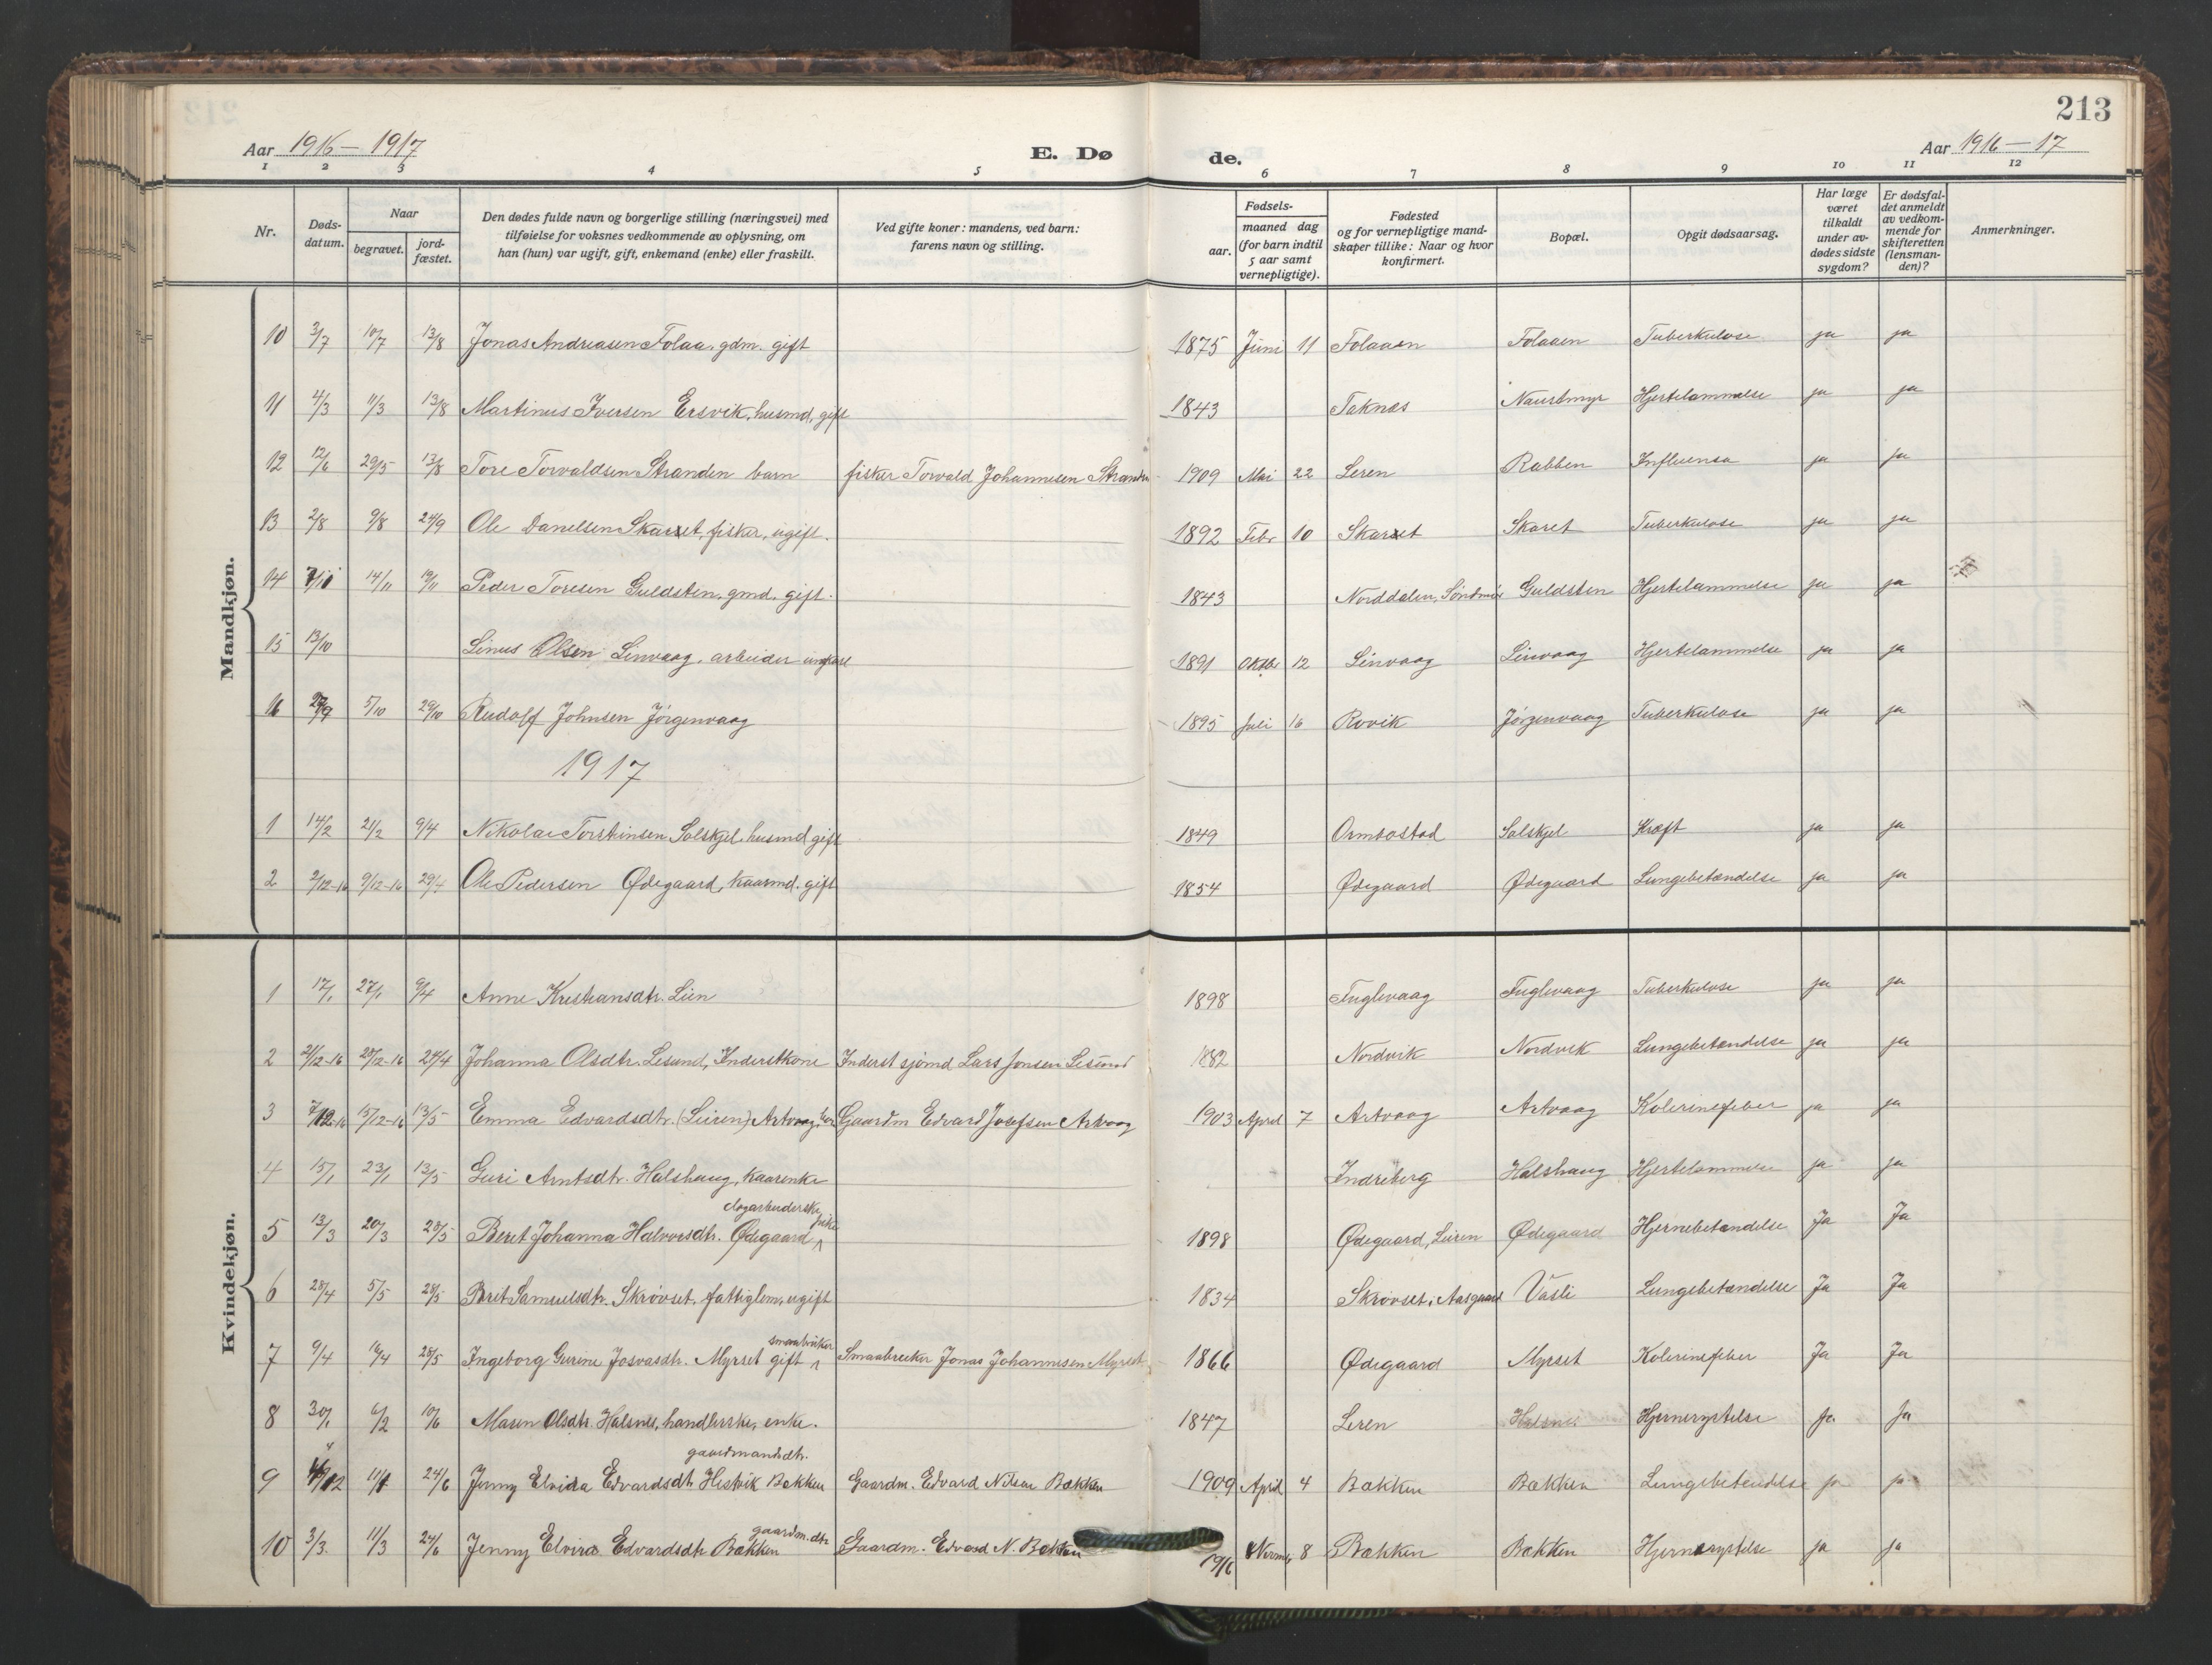 213
Aar 1916 — 1917 E. Dø de. Aar 1916 — 17
1 2 3 4 5 6 7 8 9 10 11 12
Nr. Døds-datum. Naar begravet. jord-fæstet. Den dødes fulde navn og borgerlige stilling (næringsvei) med tilføielse for voksnes vedkommende av oplysning, om han (hun) var ugift, gift, enkemand (enke) eller fraskilt. Ved gifte koner: mandens, ved barn: farens navn og stilling. Fødsels- aar. maaned dag (for barn indtil 5 aar samt vernepligtige). Fødested og for vernepligtige mand-skaper tillike: Naar og hvor konfirmert. Bopæl. Opgit dødsaarsag. Har læge været tilkaldt under av-dødes sidste sygdom? Er dødsfal-det anmeldt av vedkom-mende for skifteretten (lensman-den)? Anmerkninger.
Mandkjøn.
10 3/7 10/7 13/8 Jonas Andreasen Folaa. gdm. gift 1875 Juni 11 Folaaen Folaaen Tuberkulose ja ja
11 4/3 11/3 13/8 Martinus Iversen Ersvik, husmd, gift 1843 Taknes Naustmyr Hjertelammelse ja ja
12 12/6 29/5 13/8 Tore Torvaldsen Stranden barn fisker Torvald Johannesen Stranden 1909 Mai 22 Leren Rabben Influensa ja ja
13 2/8 9/8 24/9 Ole Danelsen Skaret, fisker, ugift. 1892 Febr 10 Skaret Skaret Tuberkulose ja ja
14 7/11 14/11 19/11 Peder Toresen Guldsten, gmd. gift. 1843 Norddalen, Söndmør Guldsten Hjertelammelse ja ja
15 13/10 Linus Olsen Linvaag. arbeider ungkarl 1891 Oktbr 12 Linvaag Linvaag Hjertelammelse ja ja
16 29/9 5/10 29/10 Rudolf Johnsen Jørgenvaag 1895 Juli 16 Rovik Jørgenvaag Tuberkulose ja ja
1917
1 14/2 21/2 9/4 Nikolai Torstensen Solskjel. husmd gift 1849 Ormbostad Solskjel Kræft ja ja
2 2/12-16 9/12-16 29/4 Ole Pedersen Ødegaard, kaarmd. gift 1854 Ødegaard Ødegaard Lungebetændelse ja ja
Kvindekjøn.
1 17/1 27/1 9/4 Anne Kristiansdtr. Lien 1898 Fuglevaag Fuglevaag Tuberkulose ja ja
2 21/12-16 28/12-16 29/4 Johanna Olsdtr. Lesund, Inderstkone Inderst sjömd Lars Jonsen Lesund 1882 Nordvik Nordvik Lungebetændelse ja ja
3 7/12-16 15/12-16 13/5 Emma Edvardsdtr. (Leiren) Artvaag, Gaardm Edvard Josefsen Artvaag 1903 April 7 Artvaag Artvaag Kolerinefeber ja ja
4 15/1 23/1 13/5 Guri Arntsdtr. Halshaug, kaarenke Indreberg Halshaug Hjertelammelse ja ja
5 13/3 20/3 28/5 Beret Johanna Halvorsdtr. Ødegaard dagarbeiderske, pike 1898 Ødegaard, Leiren Ødegaard Hjernebetændelse Ja Ja
6 28/4 5/5 28/5 Beret Samuelsdtr. Skrövset. fattiglem, ugift 1834 Skrövset i Aasgaard Vasli Lungebetændelse Ja Ja
7 9/4 16/4 28/5 Ingeborg Gurine Josvasdtr. Myrset gift smaabruker Smaabruker Jonas Johannesen Myrset 1866 Ødegaard Myrset Kolerinefeber Ja Ja
8 30/1 6/2 10/6 Maren Olsdtr. Halsnes, handlerske, enke. 1847 Leren Halsnes Hjernerystelse Ja Ja
9 11/1 24/6 Jenny Elvida Edvardsdtr Hestvik Bækken gaardmandsdtr. Gaardm. Edvard Nilsen Bækken 1909 April 4 Bækken Bækken Lungebetændelse ja ja
10 3/3. 11/3 24/6 Jenny Elvira Edvardsdtr Bækken gaardm. dtr Gaardm. Edvard N. Bækken 1916 8 Bækken Bækken Hjernerystelse ja ja